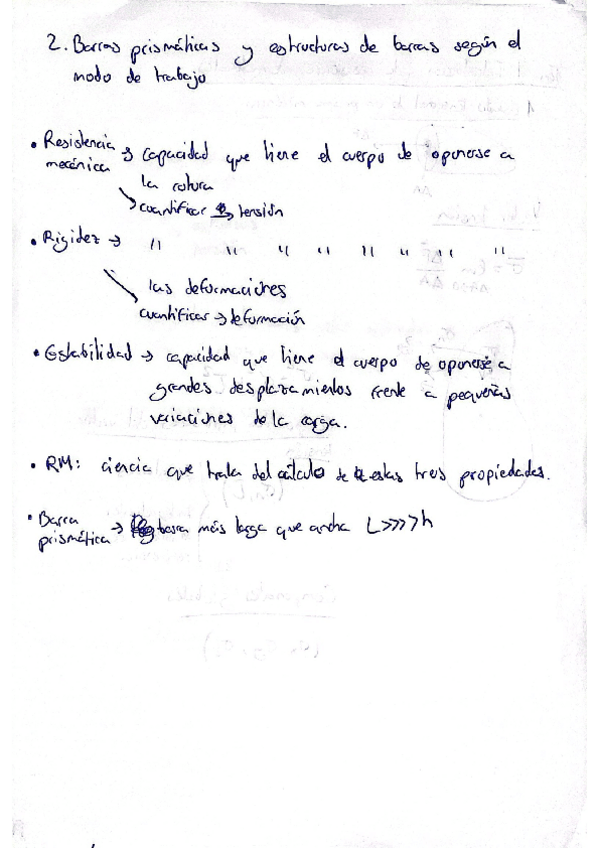 2. Barras prismáticas y estructuras de barras según el
modo de trabajo
• Resistencia mecánica → capacidad que tiene el cuerpo de oponerse a
la rotura
↳ cuantificar → tensión
• Rigidez → " " " " " " " "
las deformaciones
cuantificar → deformación
• Estabilidad → capacidad que tiene el cuerpo de oponerse a
grandes desplazamientos frente a pequeñas
variaciones de la carga.
• RM: ciencia que trata del cálculo de estas tres propiedades.
• Barra prismática → barra más larga que ancha L>>>>h